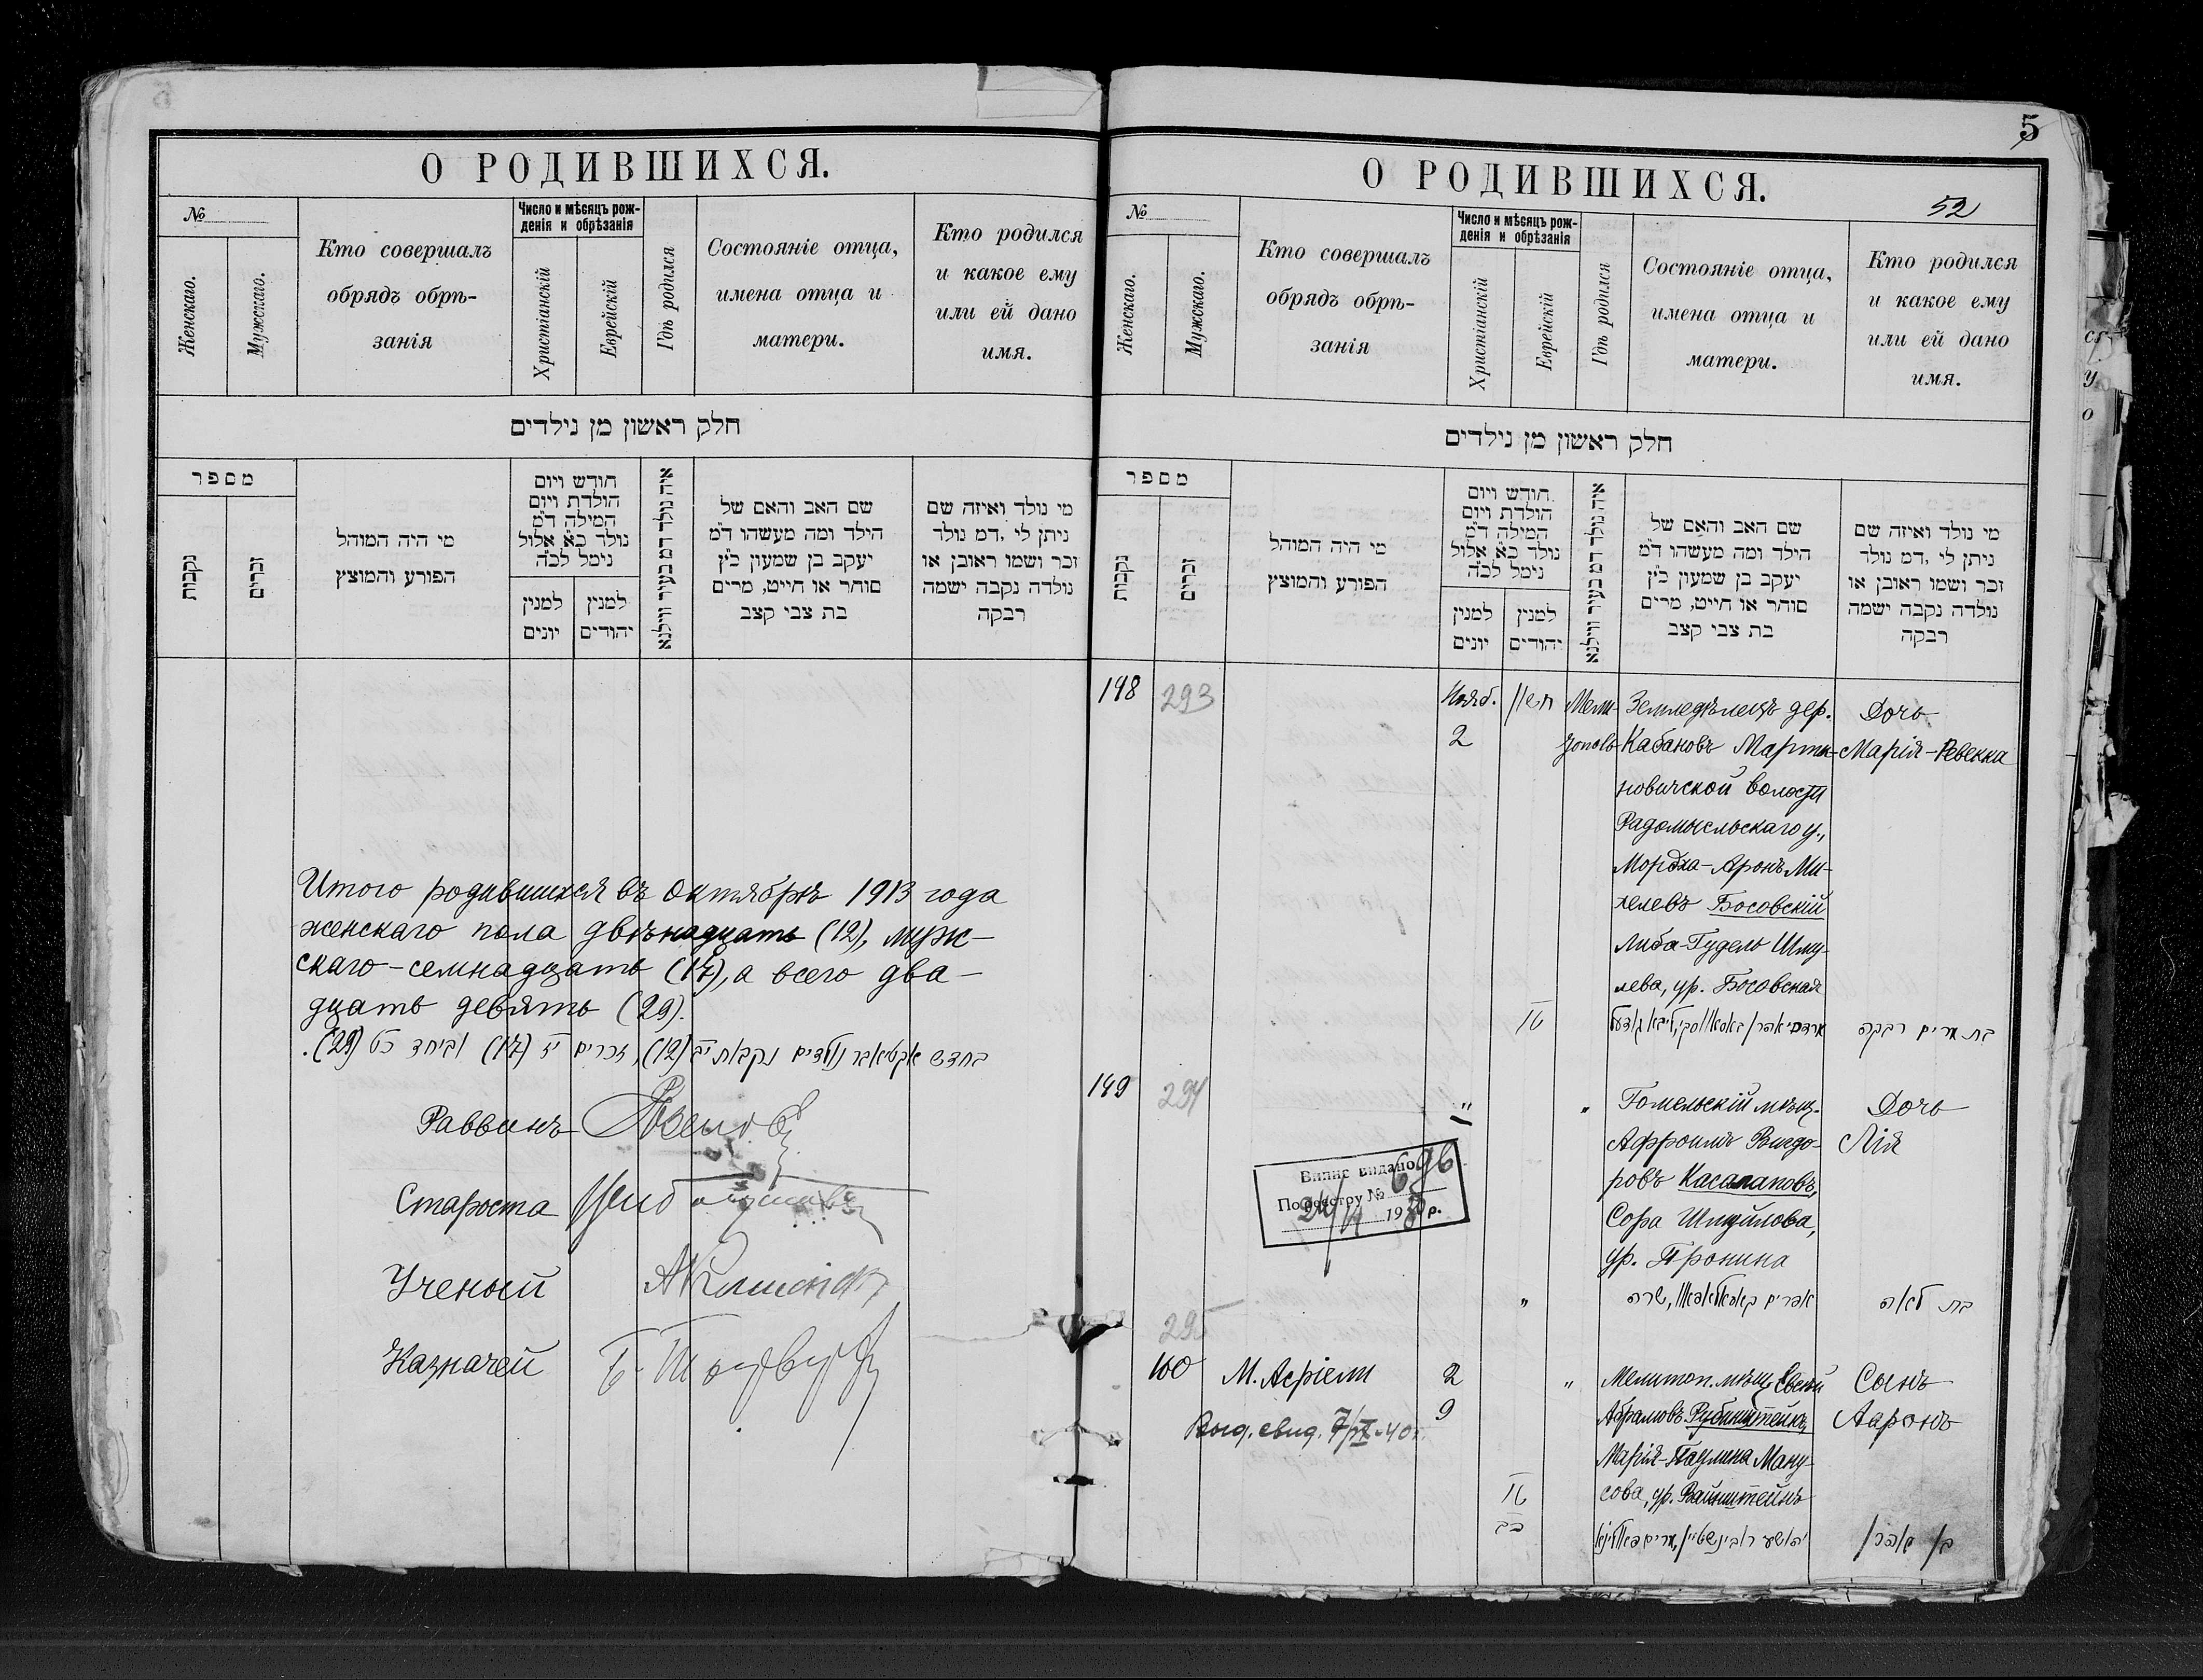 О РОДИВШИХСЯ.
№
Женскаго.
Мужскаго.
Кто совершалъ
обрядъ обрѣ-
занія
Число и мѣсяцъ рож-
денія и обрѣзанія
Христіанскій
Еврейскій
Гдѣ родился
Состояніе отца,
имена отца и
матери.
Кто родился
и какое ему
или ей дано
имя.
חלק ראשון מן נילדים
מספר
נקבות
זכרים
מי היה המוהל
הפורע והמוצץ
חודש ויום
הולדת ויום
המילה ד״מ
נולד כ״א אלול
נימל לכ״ה
למנין
יונים
למנין
יהודים
איה נולד דמ בעיר ווילנא
שם האב והאם של
הילד ומה מעשהו ד״מ
יעקב בן שמעון כ״ץ
סוחר או חייט, מרים
בת צבי קצב
מי נולד ואיזה שם
ניתן לי ,דמ נולד
זכר ושמו ראובן או
נולדה נקבה ישמה
רבקה
Итого родившихся въ Октябрѣ 1913 года
женскаго пола двѣнадцать (12), муж-
скаго-семнадцать (17), а всего два-
дцать девять (29).
בחדש אקטיאבר נולדים נקבות י״ב (12), זכרים י״ז (17) וביחד כ״ט (29).
Раввинъ
Староста
Ученый
Казначей
5
О РОДИВШИХСЯ.
52
№
Женскаго.
Мужскаго.
Кто совершалъ
обрядъ обрѣ-
занія
Число и мѣсяцъ рож-
денія и обрѣзанія
Христіанскій
Еврейскій
Гдѣ родился
Состояніе отца,
имена отца и
матери.
Кто родился
и какое ему
или ей дано
имя.
חלק ראשון מן נילדים
מספר
נקבות
זכרים
מי היה המוהל
הפורע והמוצץ
חודש ויום
הולדת ויום
המילה ד״מ
נולד כ״א אלול
נימל לכ״ה
למנין
יונים
למנין
יהודים
איה נולד דמ בעיר ווילנא
שם האב והאם של
הילד ומה מעשהו ד״מ
יעקב בן שמעון כ״ץ
סוחר או חייט, מרים
בת צבי קצב
מי נולד ואיזה שם
ניתן לי ,דמ נולד
זכר ושמו ראובן או
נולדה נקבה ישמה
רבקה
148 293 Нояб. חשון Мели- Земледѣлецъ дер. Дочь
2 тополь Кабановъ Марти- Марія-Ревекка
новичской волости
Радомысльскаго у.,
Мордха-Аронъ Ми-
хелевъ Босовскій
Либа-Гудель Шму-
лева, ур. Босовская
בת מרים רבקה
149 294 " " Гомельскій мѣщ. Дочь
Афроимъ Вигдо- Лія
ровъ Касалаповъ,
Сора Шмуйлова,
ур. Пронина
" אפרים קאסאלאפאוו, שרה בת לאה
Випис видано 696
По реєстру №
19 р.
295
160 М. Асріели 2 " Мелитоп. мѣщ. Евсей Сынъ
Выд. свид. 7/IX-40 г. 9 Абрамовъ Рубинштейнъ, Ааронъ
Марія-Паулина Ману-
сова, ур. Вайнштейнъ
יהושע רובינשטיין, מרים פאולינא בן אהרן